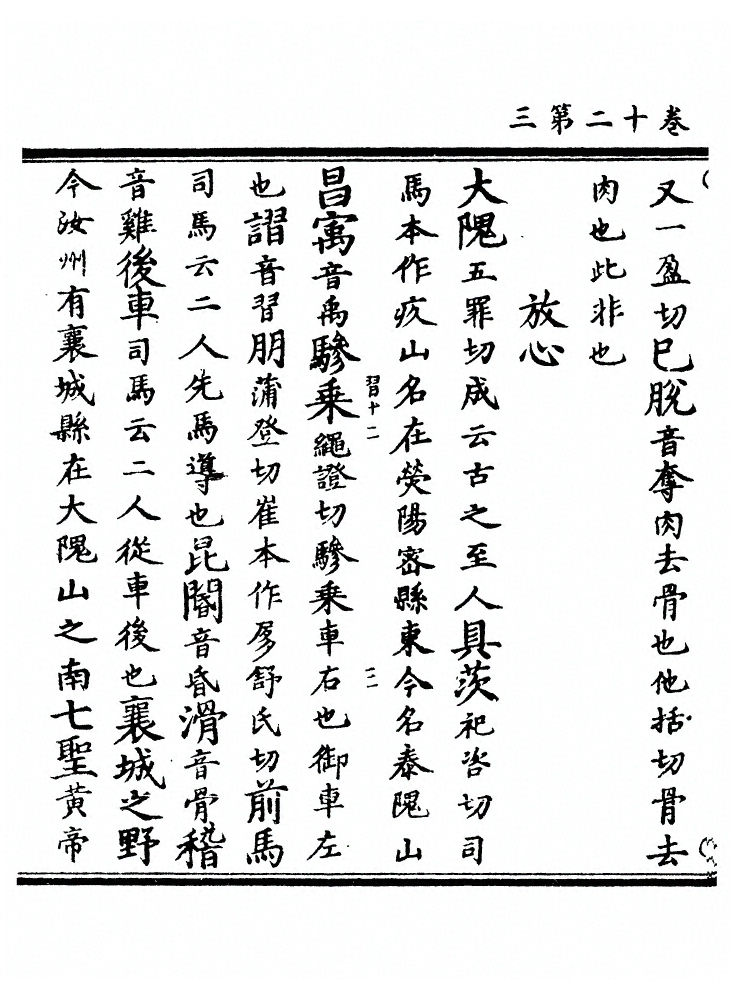 卷十二第三
又一盈切巳脫音奪肉去骨也他括切骨去
肉也此非也
放心
大隗五罪切成云古之至人具茨祀咨切司
馬本作疚山名在熒陽密縣東今名泰隗山
昌㝢音禹驂乗繩證切驂乗車右也御車左
習十二
三
也謵音習朋蒲登切崔本作𢊁舒氏切前馬
司馬云二人先馬導也昆閽音昏滑音骨稽
音雞後車司馬云二人從車後也襄城之野
今汝州有襄城縣在大隗山之南七聖黃帝